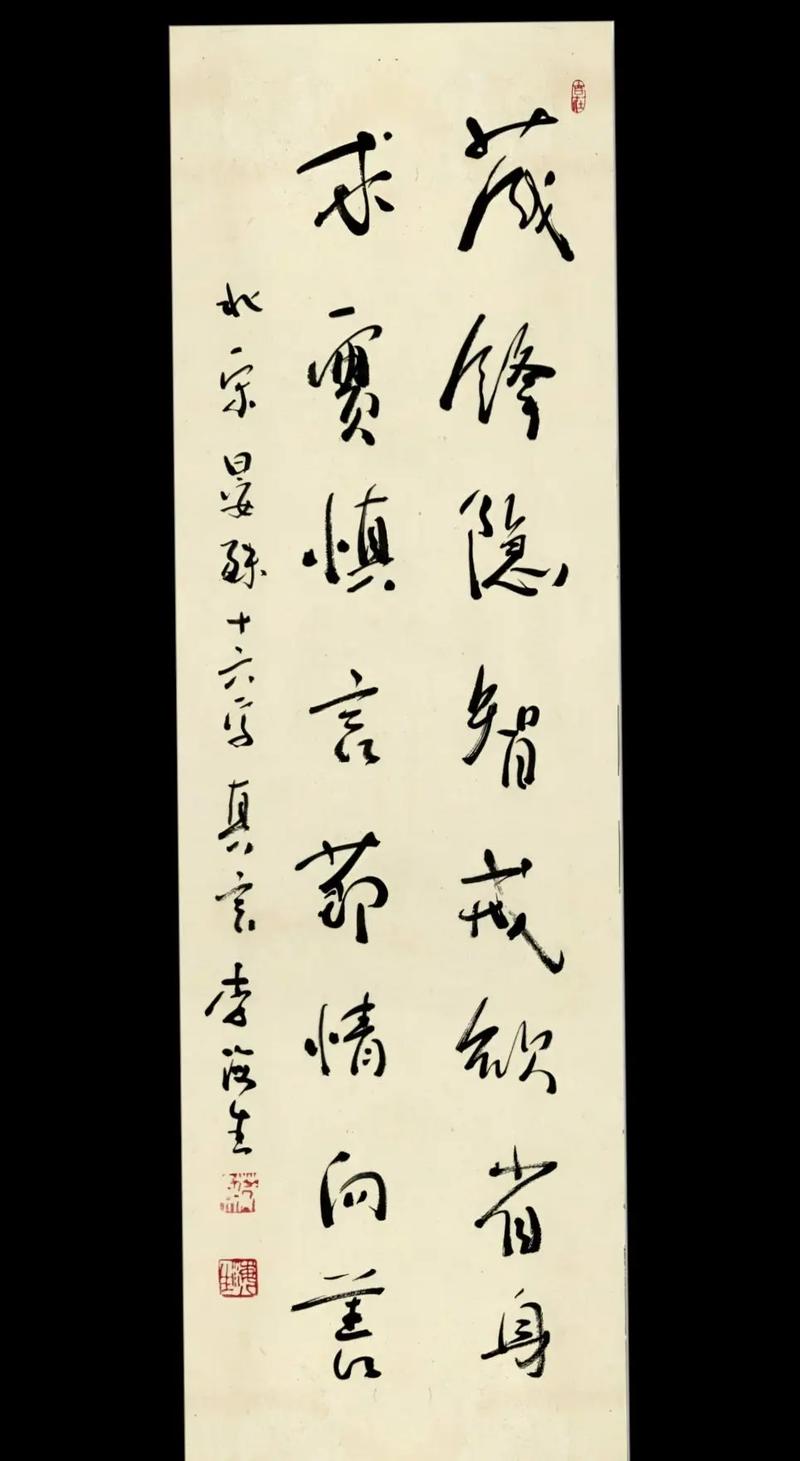 藏鋒隐智戒欲省身
求實慎言節情向善
北宋晏殊十六字真言 李生